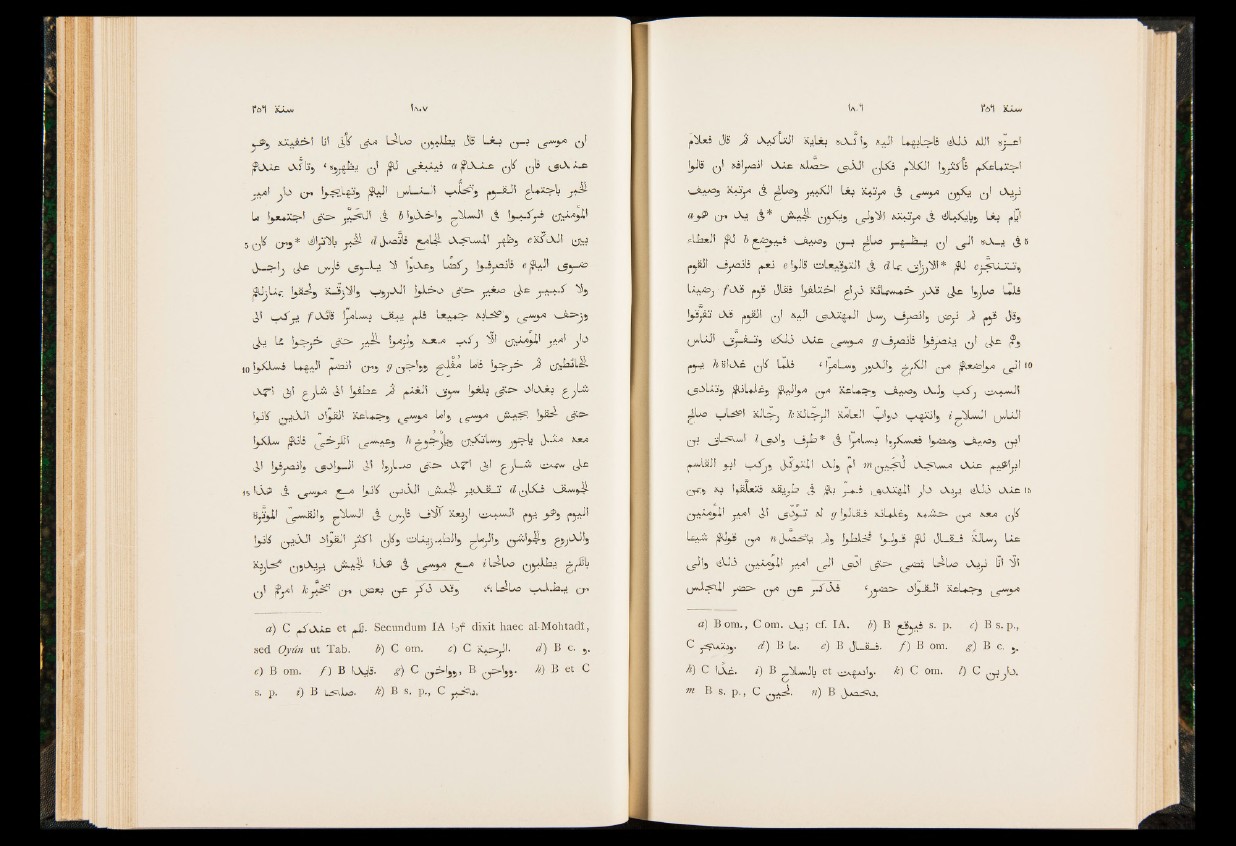 سنة ٢٥٦ ١٨٠٦
اعزّه الله ذلك فاجابهما اليه واكّده بغاية التأكيد ثم قال فعلام
اجتماعكم فاكثروا الكلام فكان الذى حصّله عند انصرافه ان قالوا
نريد ان يكون موسى فى مرتبة بغا الكبير وصالح فى مرتبة وصيف
ايّام بغا وبايكباك فى مرتبته الاولى ويكون الجيش *فى يد من هو a
5 فى يده الى ان يظهر صالح بن وصيف فيوضع b لهم العطاء
وتتنجّز c لهم *الارزاق بما d فى التوقيعات قالوا e نعم فانصرف القوم
فلمّا صاروا على قدر خمسمائة ذراع اختلفوا فقال قوم قد f رضينا
وقال قوم لم نرض وانصرف رسل المهتدى اليه ان القوم قد تفرّقوا
وهم على ان ينصرفوا فانصرف g موسى عند ذلك وتفرّق الناس
10 الى مواضعهم من الكرخ والدور وسامرّا، فلمّا كان غداة h يوم
السبت ركب ولد وصيف وجماعة من مواليهم وغلمانهم وتنادى
الناس السلاح i وانتهب دوابّ العامّة الرجّالة k رجّالة اصحاب صالح
ابن وصيف ومضوا فعسكروا بسامرّا فى *طرف وادى l اسحاق بن
ابراهيم عند مسجد لُجَيْن m امّ ولد المتوكّل وركب ابو القاسم
15 عند ذلك يريد دار المهتدى فمرّ بهم فى طريقه فتعلّقوا به وبمن
كان معه من حشمه وغلمانه فقالوا g له تؤدّى الى امير المؤمنين
عنا رسالة فقال لهم قولوا فخلطوا ولم يتحصّل n من قولهم شيئا
الّا انّا نريد صالحا فمضى حتى ادّى الى امير المؤمنين ذلك والى
موسى وجماعة القوّاد حضور، فذُكر عن من حضر المجلس
a) B om., C om. يد; cf. IA. b) B فيوقع s. p. c) B s. p.,
C . d) B ما. e) B فقال. f) B om. g) B c. و.
h) C غدا. i) B بالسلاح et وانتهبت. k) C om. l) C دار بن.
m B s. p., C . n) B .
سنة ٢٥٦ ١٨٠٧
ان موسى بن بغا قال يطلبون صالحا منى كأنى انا اخفيته وهو
عندى فان كان عندهم a فينبغى لهم ان يظهروه، وتأكّد عندهم
الخبر باجتماع القوم وتحلّب الناس اليهم وتهايجوا من دار امير
المؤمنين فركبوا فى السلاح واخذوا b فى الحَيْر حتى اجتمعوا ما
5 بين الدكّة c وظهر المسجد الجامع فاتّصل d الخبر بالاتراك *ومن كان
ضوى اليهم e فانصرفوا ركضًا وعدوًا لا يلوى فارس على راجل
ولا كبير على صغير حتى دخلوا الدروب والازقّة ولحقوا بمنازلهم
وزحف موسى واصحابه جميعا فلم يبق بسامرّا قائد f يركب الى
دار امير المؤمنين الّا ركب معه ولزموا الحير حتى خرجوا مما يلى
10 الحائطين ثم خرجوا فاما مُفْلِح وواجن g ومن انضمّ اليهما فسلكوا
شارع بغداد حتى بلغوا سوق الغنم ثم عطفوا الى شارع ابى احمد
حتى لحقوا بجيش موسى واما موسى وجماعة القوّاد الذين كانوا
معه مثل ياجور وساتكين ويارجوخ h وعيسى الكرخىّ فانهم سلكوا
على سمت شارع ابى احمد حتى صاروا الى الوادى وانصرفوا الى
15 الجوسق فكان d تقدير الجيش الذين كانوا مع موسى فى هذا
اليوم وهو يوم السبت اربعة آلاف فارس فى السلاح والقسىّ الموتّرة
والدروع والجواشن والرماح والطبرزينات وكان اكثر القوّاد الذين كانوا
بالكرخ يطلبون صالحا i مع موسى فى هذا الجيش يريدون محاربة
من يطلب صالحا، وقد ذُكر عن بعض من تخبّر k امرهم ان
a) C عندكم et لكم. Secundum IA dixit haec al-Mohtadî,
sed Oyûn ut Tab. b) C om. c) C الرحبة. d) B c. و.
e) B om. f) B . g) C وواخر, B وواحن. h) B et C
s. p. i) B . k) B s. p., C .